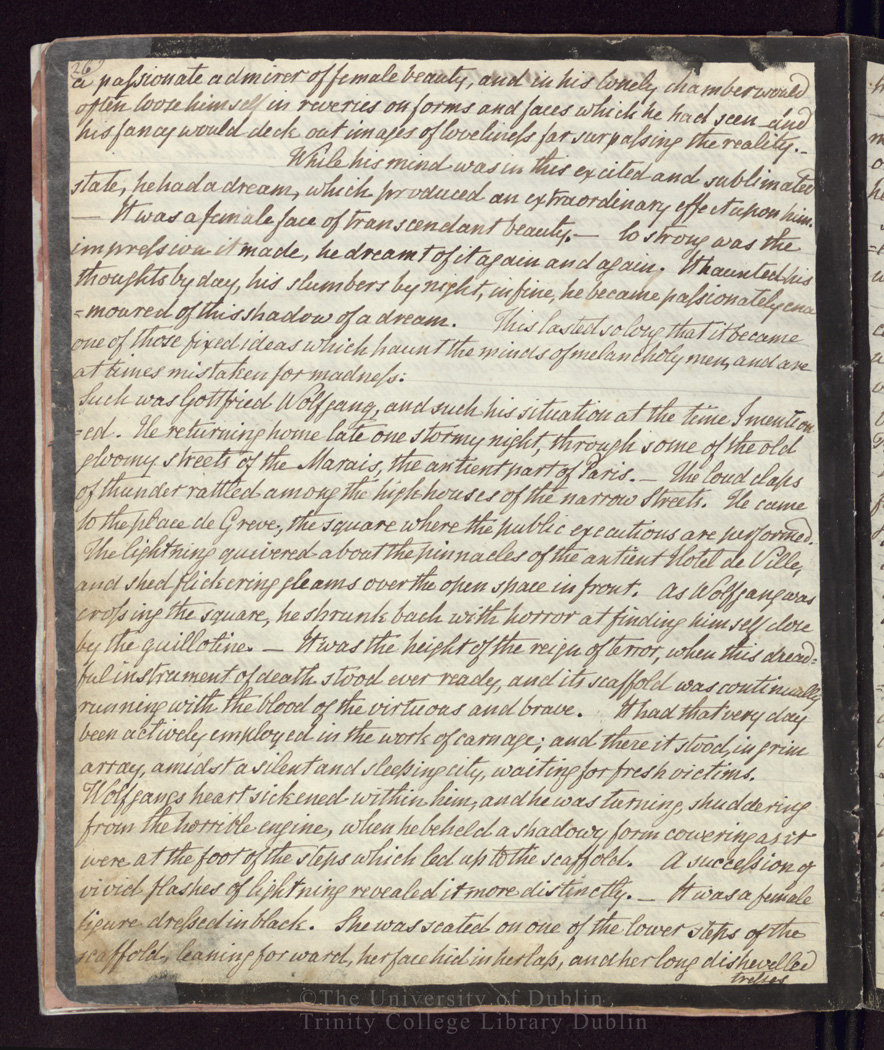 26
a passionate admirer of female beauty, and in his lonely chamber would
often loose himself in reveries on forms and faces which he had seen and
his fancy would deck out images of loveliness far surpassing the reality. -
While his mind was in this excited and sublimated
state, he had a dream, which produced an extraordinary effect upon him.
— It was a female face of transcendant beauty. — So strong was the
impression it made, he dreamt of it again and again. It haunted his
thoughts by day, his slumbers by night, in fine, he became passionately ena
=moured of this shadow of a dream. This lasted so long that it became
one of those fixed ideas which haunt the minds of melancholy men, and are
at times mistaken for madness.
Such was Gottfried Wolfgang, and such his situation at the time I mention
=ed. He returning home late one stormy night, through some of the old
gloomy streets of the Marais, the antient part of Paris. — The loud claps
of thunder rattled among the high houses of the narrow streets. He came
to the place de Greve, the square where the public executions are performed.
The lightning quivered about the pinnacles of the antient Hotel de Ville,
and shed flickering gleams over the open space in front. As Wolfgang was
crossing the square, he shrunk back with horror at finding himself close
by the guillotine. — It was the height of the reign of terror, when this dread=
ful instrument of death stood ever ready, and its scaffold was continually
running with the blood of the virtuous and brave. It had that very day
been actively employed in the work of carnage; and there it stood, in grim
array, amidst a silent and sleeping city, waiting for fresh victims.
Wolfgangs heart sickened within him, and he was turning, shuddering
from the horrible engine, when he beheld a shadowy form cowering as it
were at the foot of the steps which led up to the scaffold. A succession of
vivid flashes of lightning revealed it more distinctly. — It was a female
figure dressed in black. She was seated on one of the lower steps of the
scaffold, leaning forward, her face hid in her lap, and her long dishevelled
tresses
©The University of Dublin
Trinity College Library Dublin